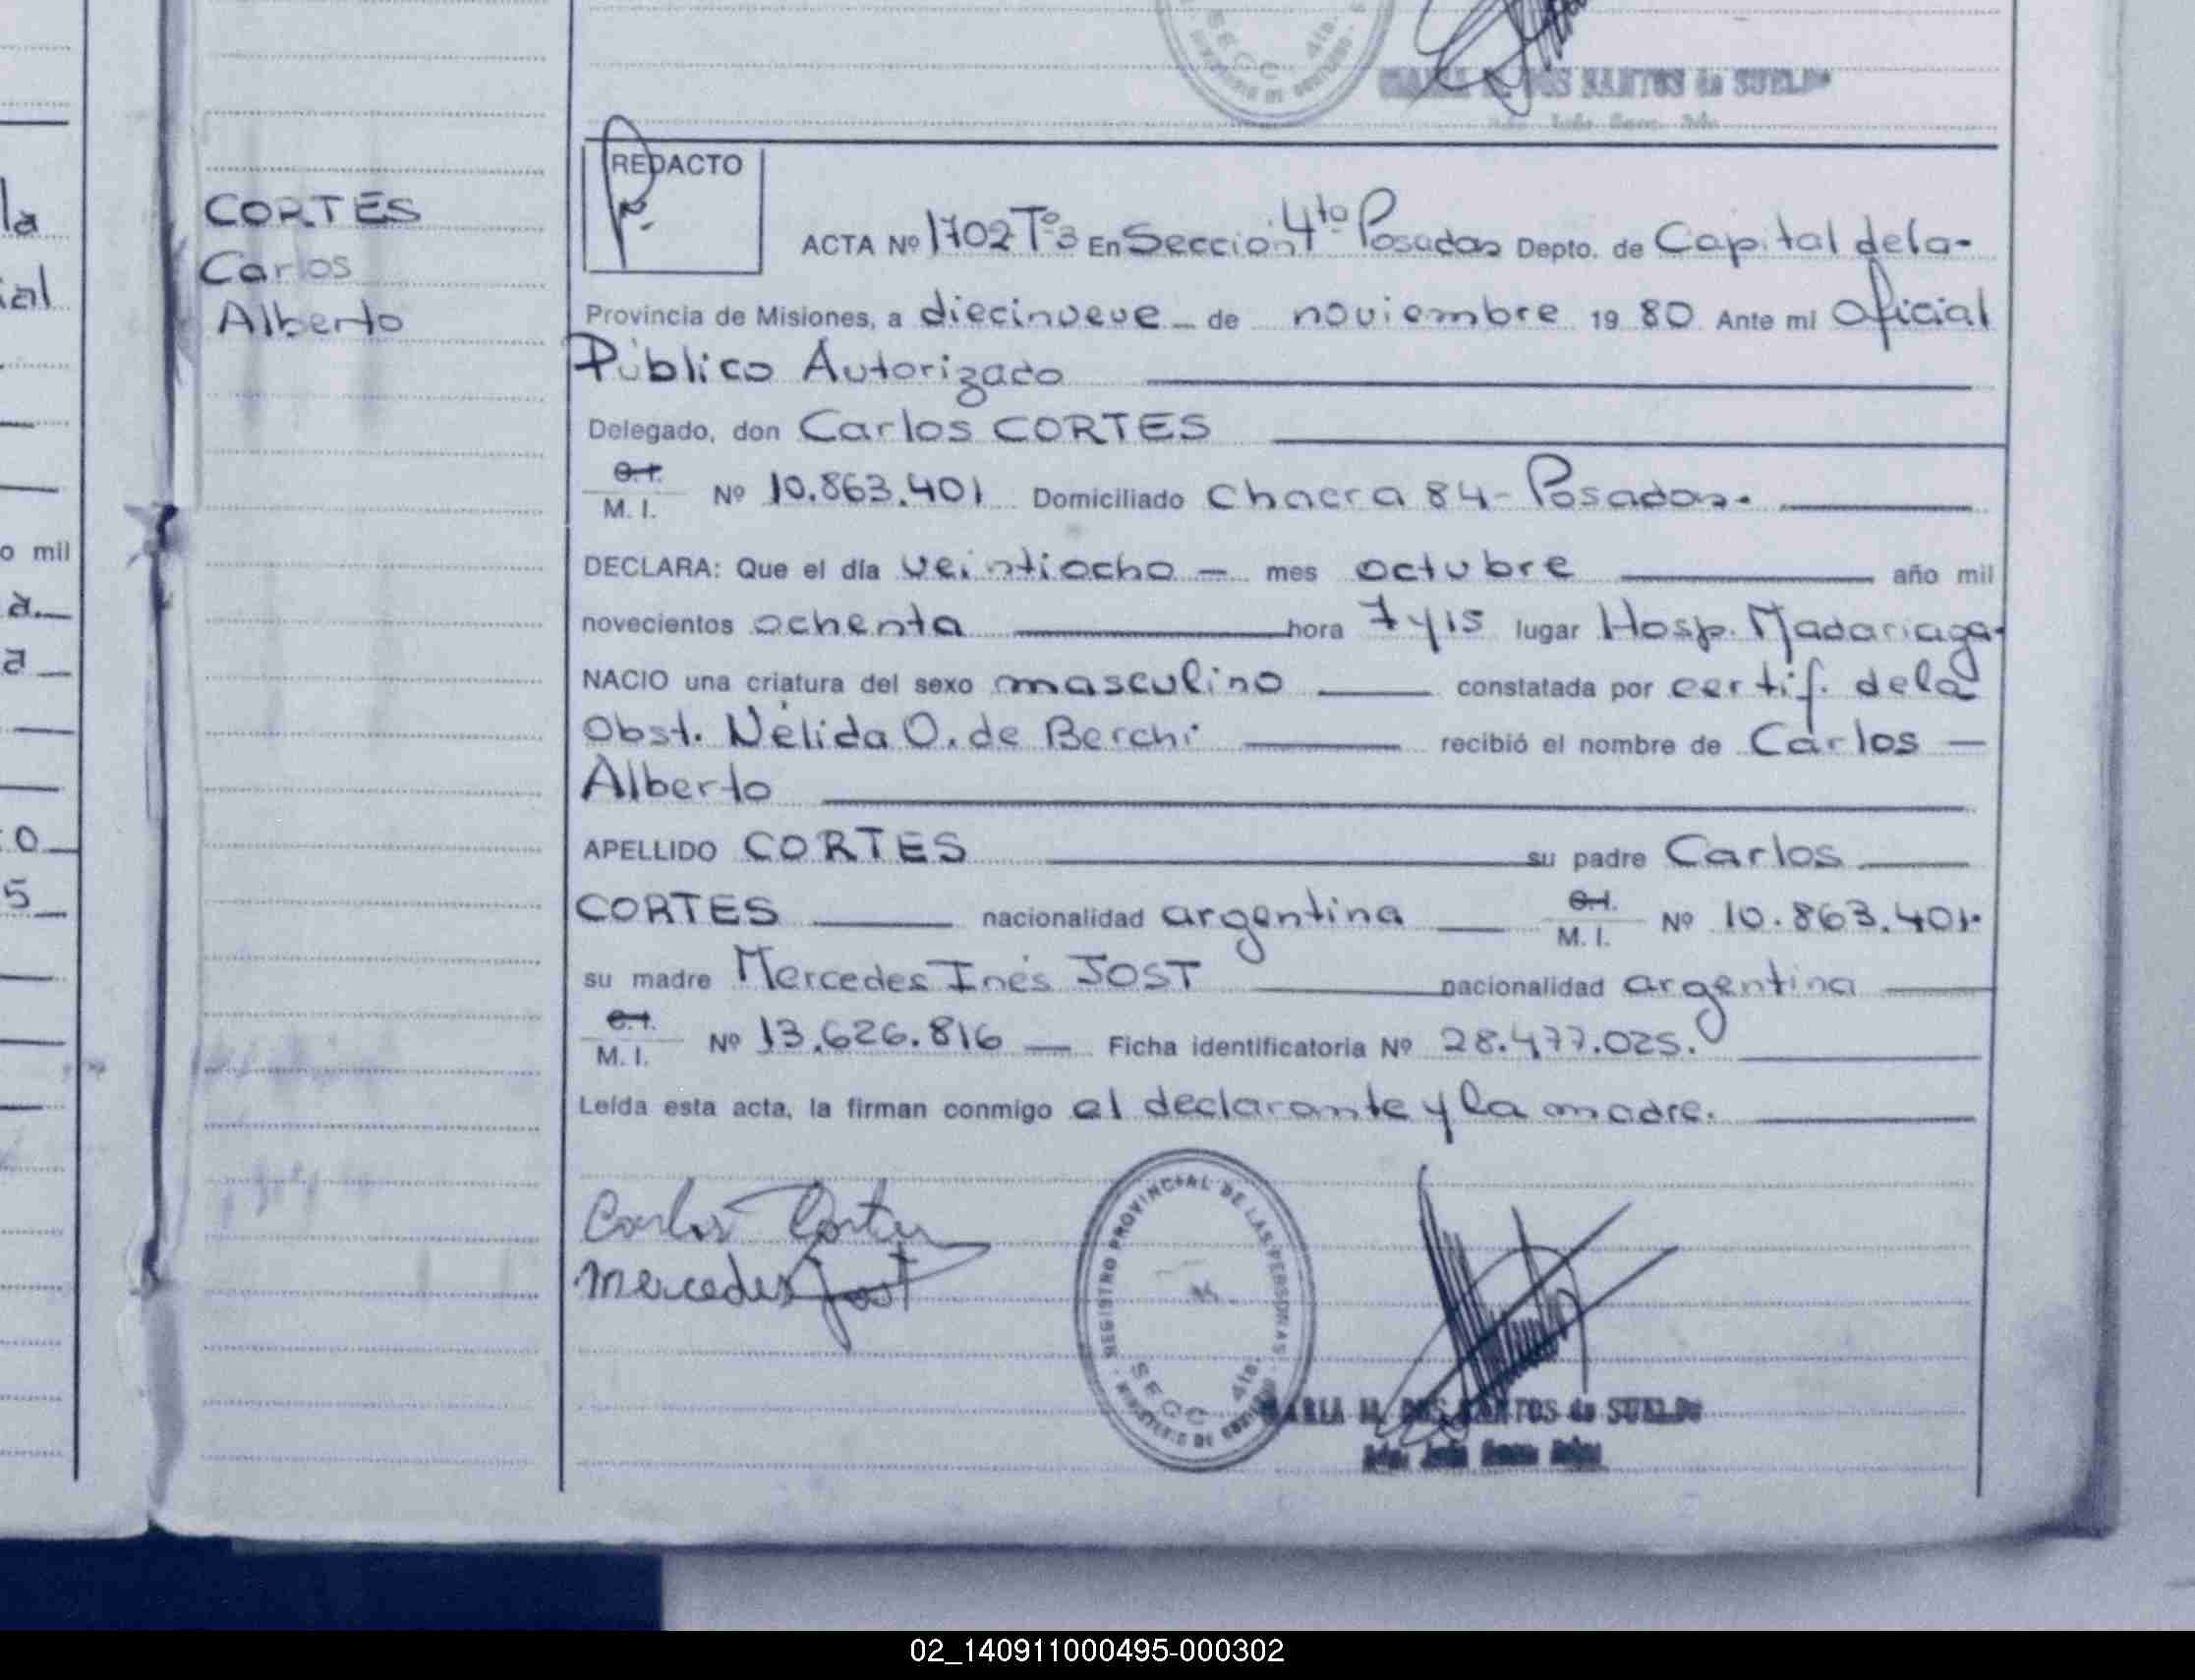 MARIA M. DOS SANTOS de SUELDO
SECC. 4ta.
REDACTO
CORTES
Carlos
Alberto
ACTA Nº 1702 Tº3 En Sección 4to Posadas Depto. de Capital de la-
Provincia de Misiones, a diecinueve - de noviembre 19 80 Ante mi Oficial
Público Autorizado
Delegado, don Carlos CORTES
C.I.
M. I. Nº 10.863.401 Domiciliado Chacra 84 - Posadas.
DECLARA: Que el día veintiocho - mes octubre año mil
novecientos ochenta hora 7 y 15 lugar Hosp. Madariaga.
NACIO una criatura del sexo masculino constatada por certif. de la
Obst. Nélida O. de Berchi recibió el nombre de Carlos -
Alberto
APELLIDO CORTES su padre Carlos
CORTES nacionalidad argentina C.I.
M. I. Nº 10.863.401.
su madre Mercedes Inés JOST nacionalidad argentina
C.I.
M. I. Nº 13.626.816 - Ficha identificatoria Nº 28.477.025.
Leída esta acta, la firman conmigo el declarante y la madre.
Carlos Cortes
Mercedes Jost
REGISTRO PROVINCIAL DE LAS PERSONAS
SECC. 4ta.
MARIA M. DOS SANTOS de SUELDO
la
ial
o mil
a.
a
o
5
02_140911000495-000302